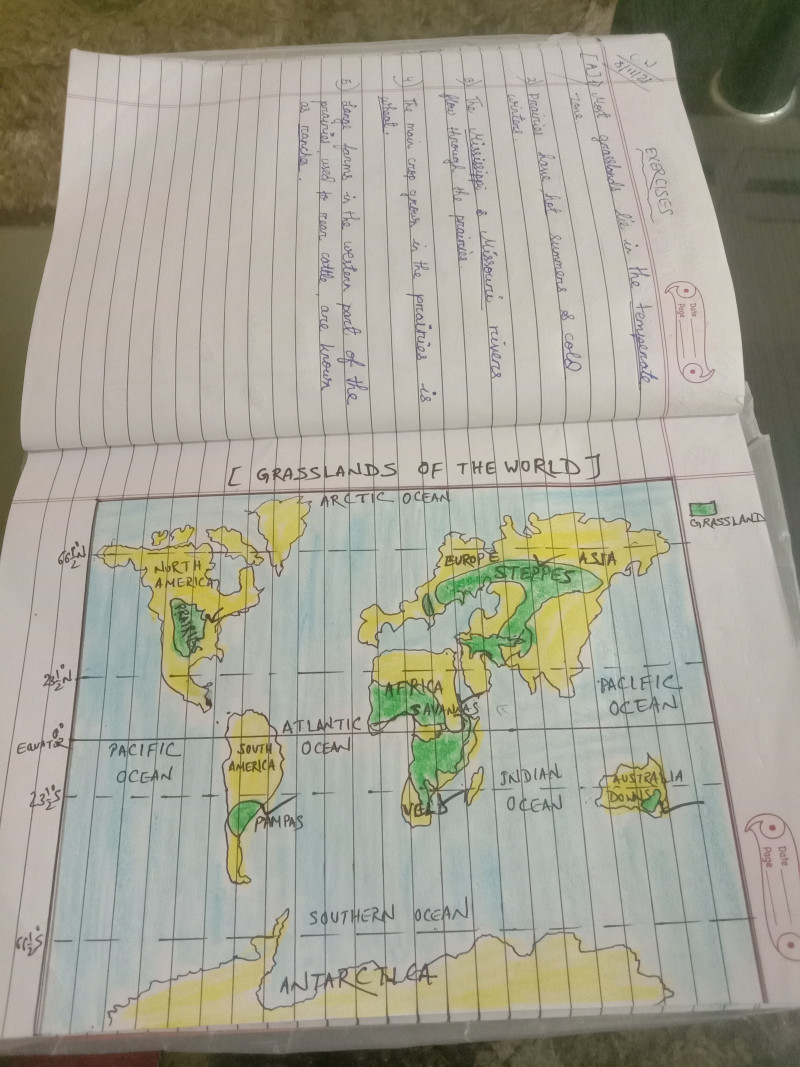 C.W
EXERCISES
[A] 1) Most grasslands lie in the temperate
zone
2) Prairies have hot summers & cold
winters
3) The Mississippi & Missouri rivers
flow through the prairies
4) The main crop grown in the prairies is
wheat.
5) Large farms in the western part of the
prairies, used to rear cattle, are known
as ranches.
Date
Page
[ GRASSLANDS OF THE WORLD ]
GRASSLAND
ARCTIC OCEAN
66 1/2° N
NORTH
AMERICA
PRAIRIES
EUROPE
ASIA
STEPPES
23 1/2° N
AFRICA
SAVANNAS
PACIFIC
OCEAN
ATLANTIC
OCEAN
EQUATOR 0°
PACIFIC
OCEAN
SOUTH
AMERICA
INDIAN
OCEAN
AUSTRALIA
DOWNS
23 1/2° S
PAMPAS
VELD
SOUTHERN OCEAN
66 1/2° S
ANTARCTICA
Date
Page